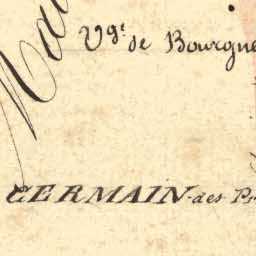 Vgt. de Bourgue
GERMAIN-des Pr